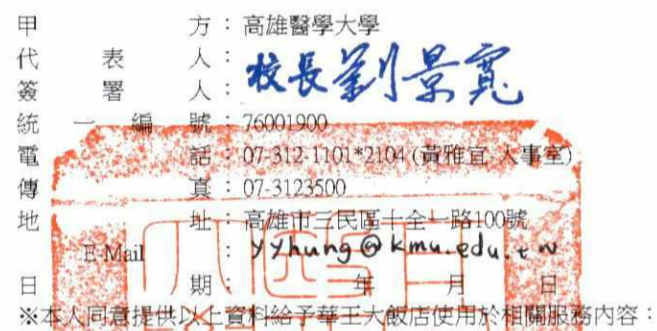 甲方：高雄醫學大學
代表人：校長劉景寬
簽署人：
統一編號：76001900
電話：07-312-1101*2104 (黃雅宜 人事室)
傳真：07-3123500
地址：高雄市三民區十全一路100號
E-Mail：yyhung@kmu.edu.tw
日期：年月日
※本人同意提供以上資料給予華王大飯店使用於相關服務內容：